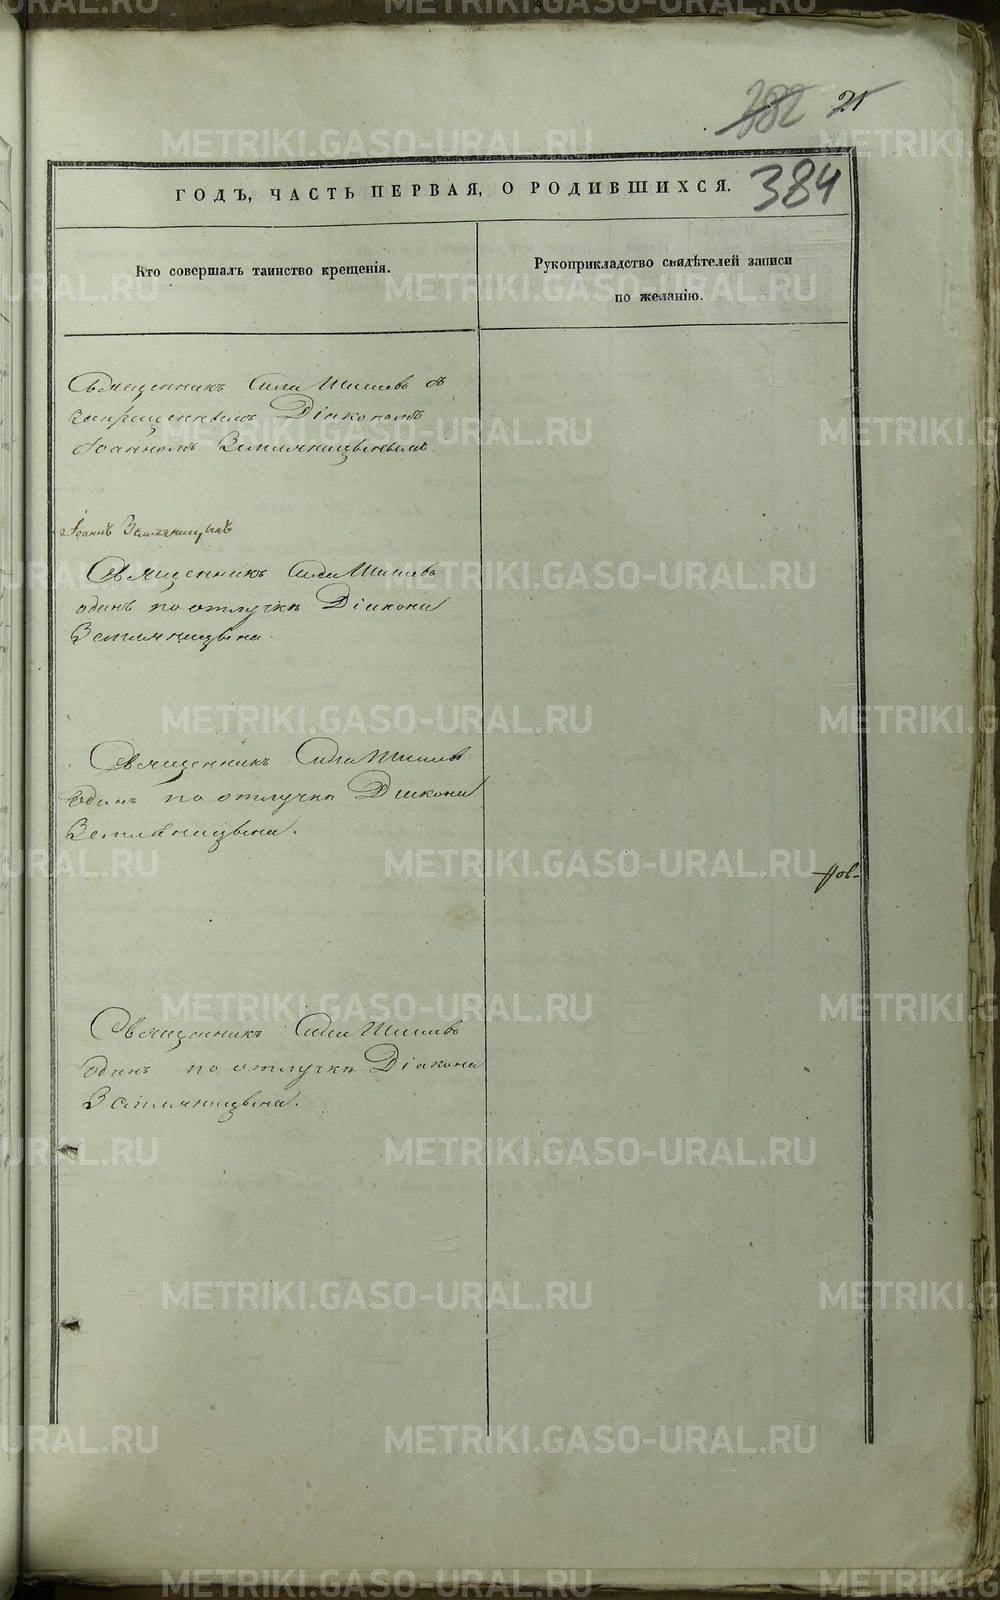 382 21
384
ГОДЪ, ЧАСТЬ ПЕРВАЯ, О РОДИВШИХСЯ.
Кто совершалъ таинство крещенія.
Рукоприкладство свидѣтелей записи
по желанію.
Священникъ Сила Шишевъ съ
запрещеннымъ Діакономъ
Іоанномъ Земляницынымъ.
Іоаннъ Земляницынъ
Священникъ Сила Шишевъ
одинъ по отлучкѣ Діакона
Земляницына.
Священникъ Сила Шишевъ
одинъ по отлучкѣ Діакона
Земляницына.
Священникъ Сила Шишевъ
одинъ по отлучкѣ Діакона
Земляницына.
METRIKI.GASO-URAL.RU